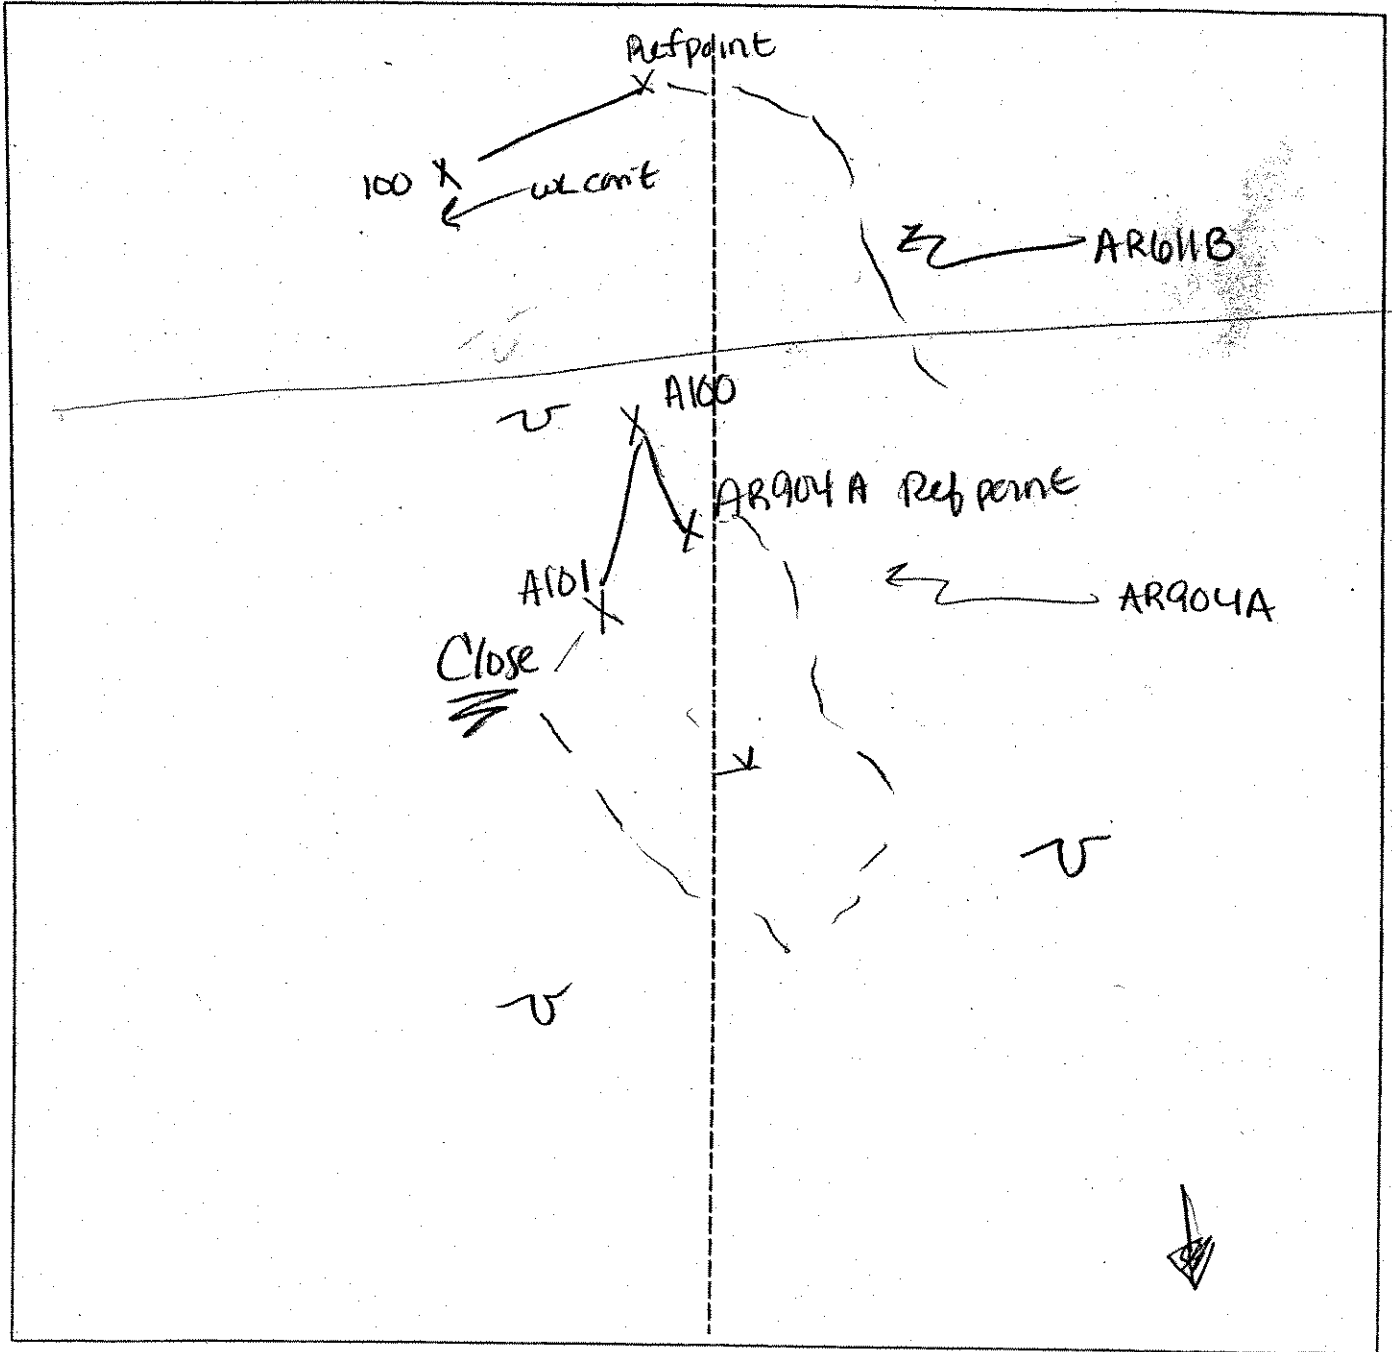 Refpoint
100
WL con't
AR611B
A100
AR904A Refpoint
A101
AR904A
Close